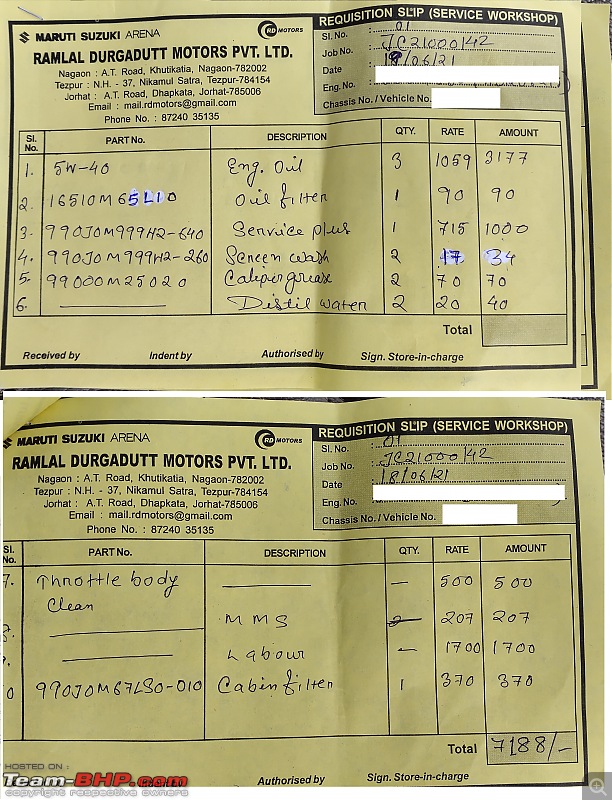 MARUTI SUZUKI ARENA
RD MOTORS
RAMLAL DURGADUTT MOTORS PVT. LTD.
Nagaon : A.T. Road, Khutikatia, Nagaon-782002
Tezpur : N.H. - 37, Nikamul Satra, Tezpur-784154
Jorhat : A.T. Road, Dhapkata, Jorhat-785006
Email : mail.rdmotors@gmail.com
Phone No. : 87240 35135
REQUISITION SLIP (SERVICE WORKSHOP)
Sl. No. : 01
Job No. : JC21000142
Date : 18/06/21
Eng. No. :
Chassis No. / Vehicle No. :
Sl. No. PART No. DESCRIPTION QTY. RATE AMOUNT
1. 5W-40 Eng. Oil 3 1059 3177
2. 16510M65L10 Oil filter 1 90 90
3. 990J0M999H2-640 Service plus 1 715 1000
4. 990J0M999H2-260 Screen wash 2 17 34
5. 99000M25020 Caliper grease 2 70 70
6. Distil water 2 20 40
Total
Received by Indent by Authorised by Sign. Store-in-charge
MARUTI SUZUKI ARENA
RD MOTORS
RAMLAL DURGADUTT MOTORS PVT. LTD.
Nagaon : A.T. Road, Khutikatia, Nagaon-782002
Tezpur : N.H. - 37, Nikamul Satra, Tezpur-784154
Jorhat : A.T. Road, Dhapkata, Jorhat-785006
Email : mail.rdmotors@gmail.com
Phone No. : 87240 35135
REQUISITION SLIP (SERVICE WORKSHOP)
Sl. No. : 01
Job No. : JC21000142
Date : 18/06/21
Eng. No.
Chassis No. / Vehicle No.
Sl. No. PART No. DESCRIPTION QTY. RATE AMOUNT
7. Throttle body — — 500 500
Clean
8. MMS 2 207 207
9. Labour — 1700 1700
0 990J0M67LS0-010 Cabin filter 1 370 370
Total 7188/-
Authorised by Sign. Store-in-charge
HOSTED ON :
Team-BHP.com
copyright respective owners